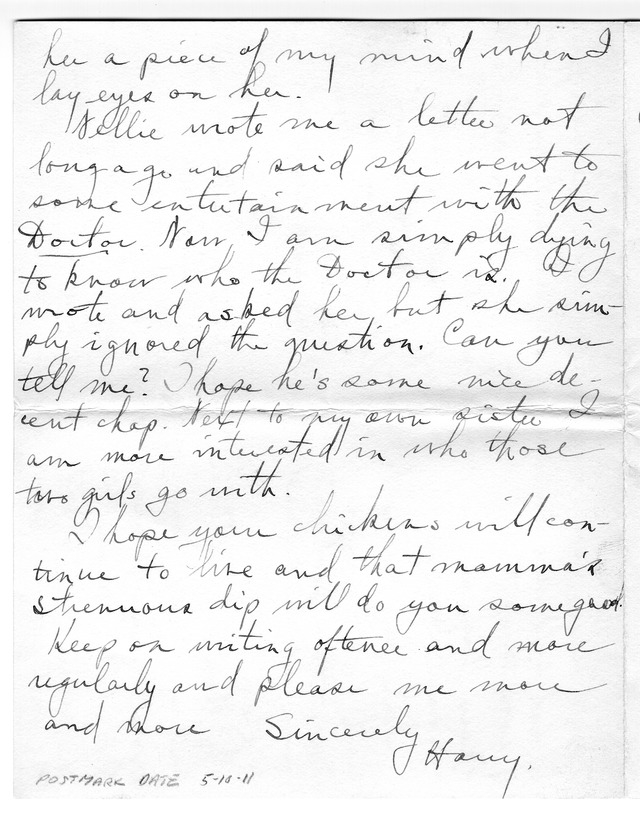 her a piece of my mind when I
lay eyes on her.
Nellie wrote me a letter not
long ago and said she went to
some entertainment with the
Doctor. Now I am simply dying
to know who the Doctor is. I
wrote and asked her but she sim-
ply ignored the question. Can you
tell me? I hope he's some nice de-
cent chap. Next to my own sister I
am more interested in who those
two girls go with.
I hope your chickens will con-
tinue to live and that mamma's
strenuous dip will do you some good.
Keep on writing oftener and more
regularly and please me more
and more Sincerely
Harry.
POSTMARK DATE 5-10-11